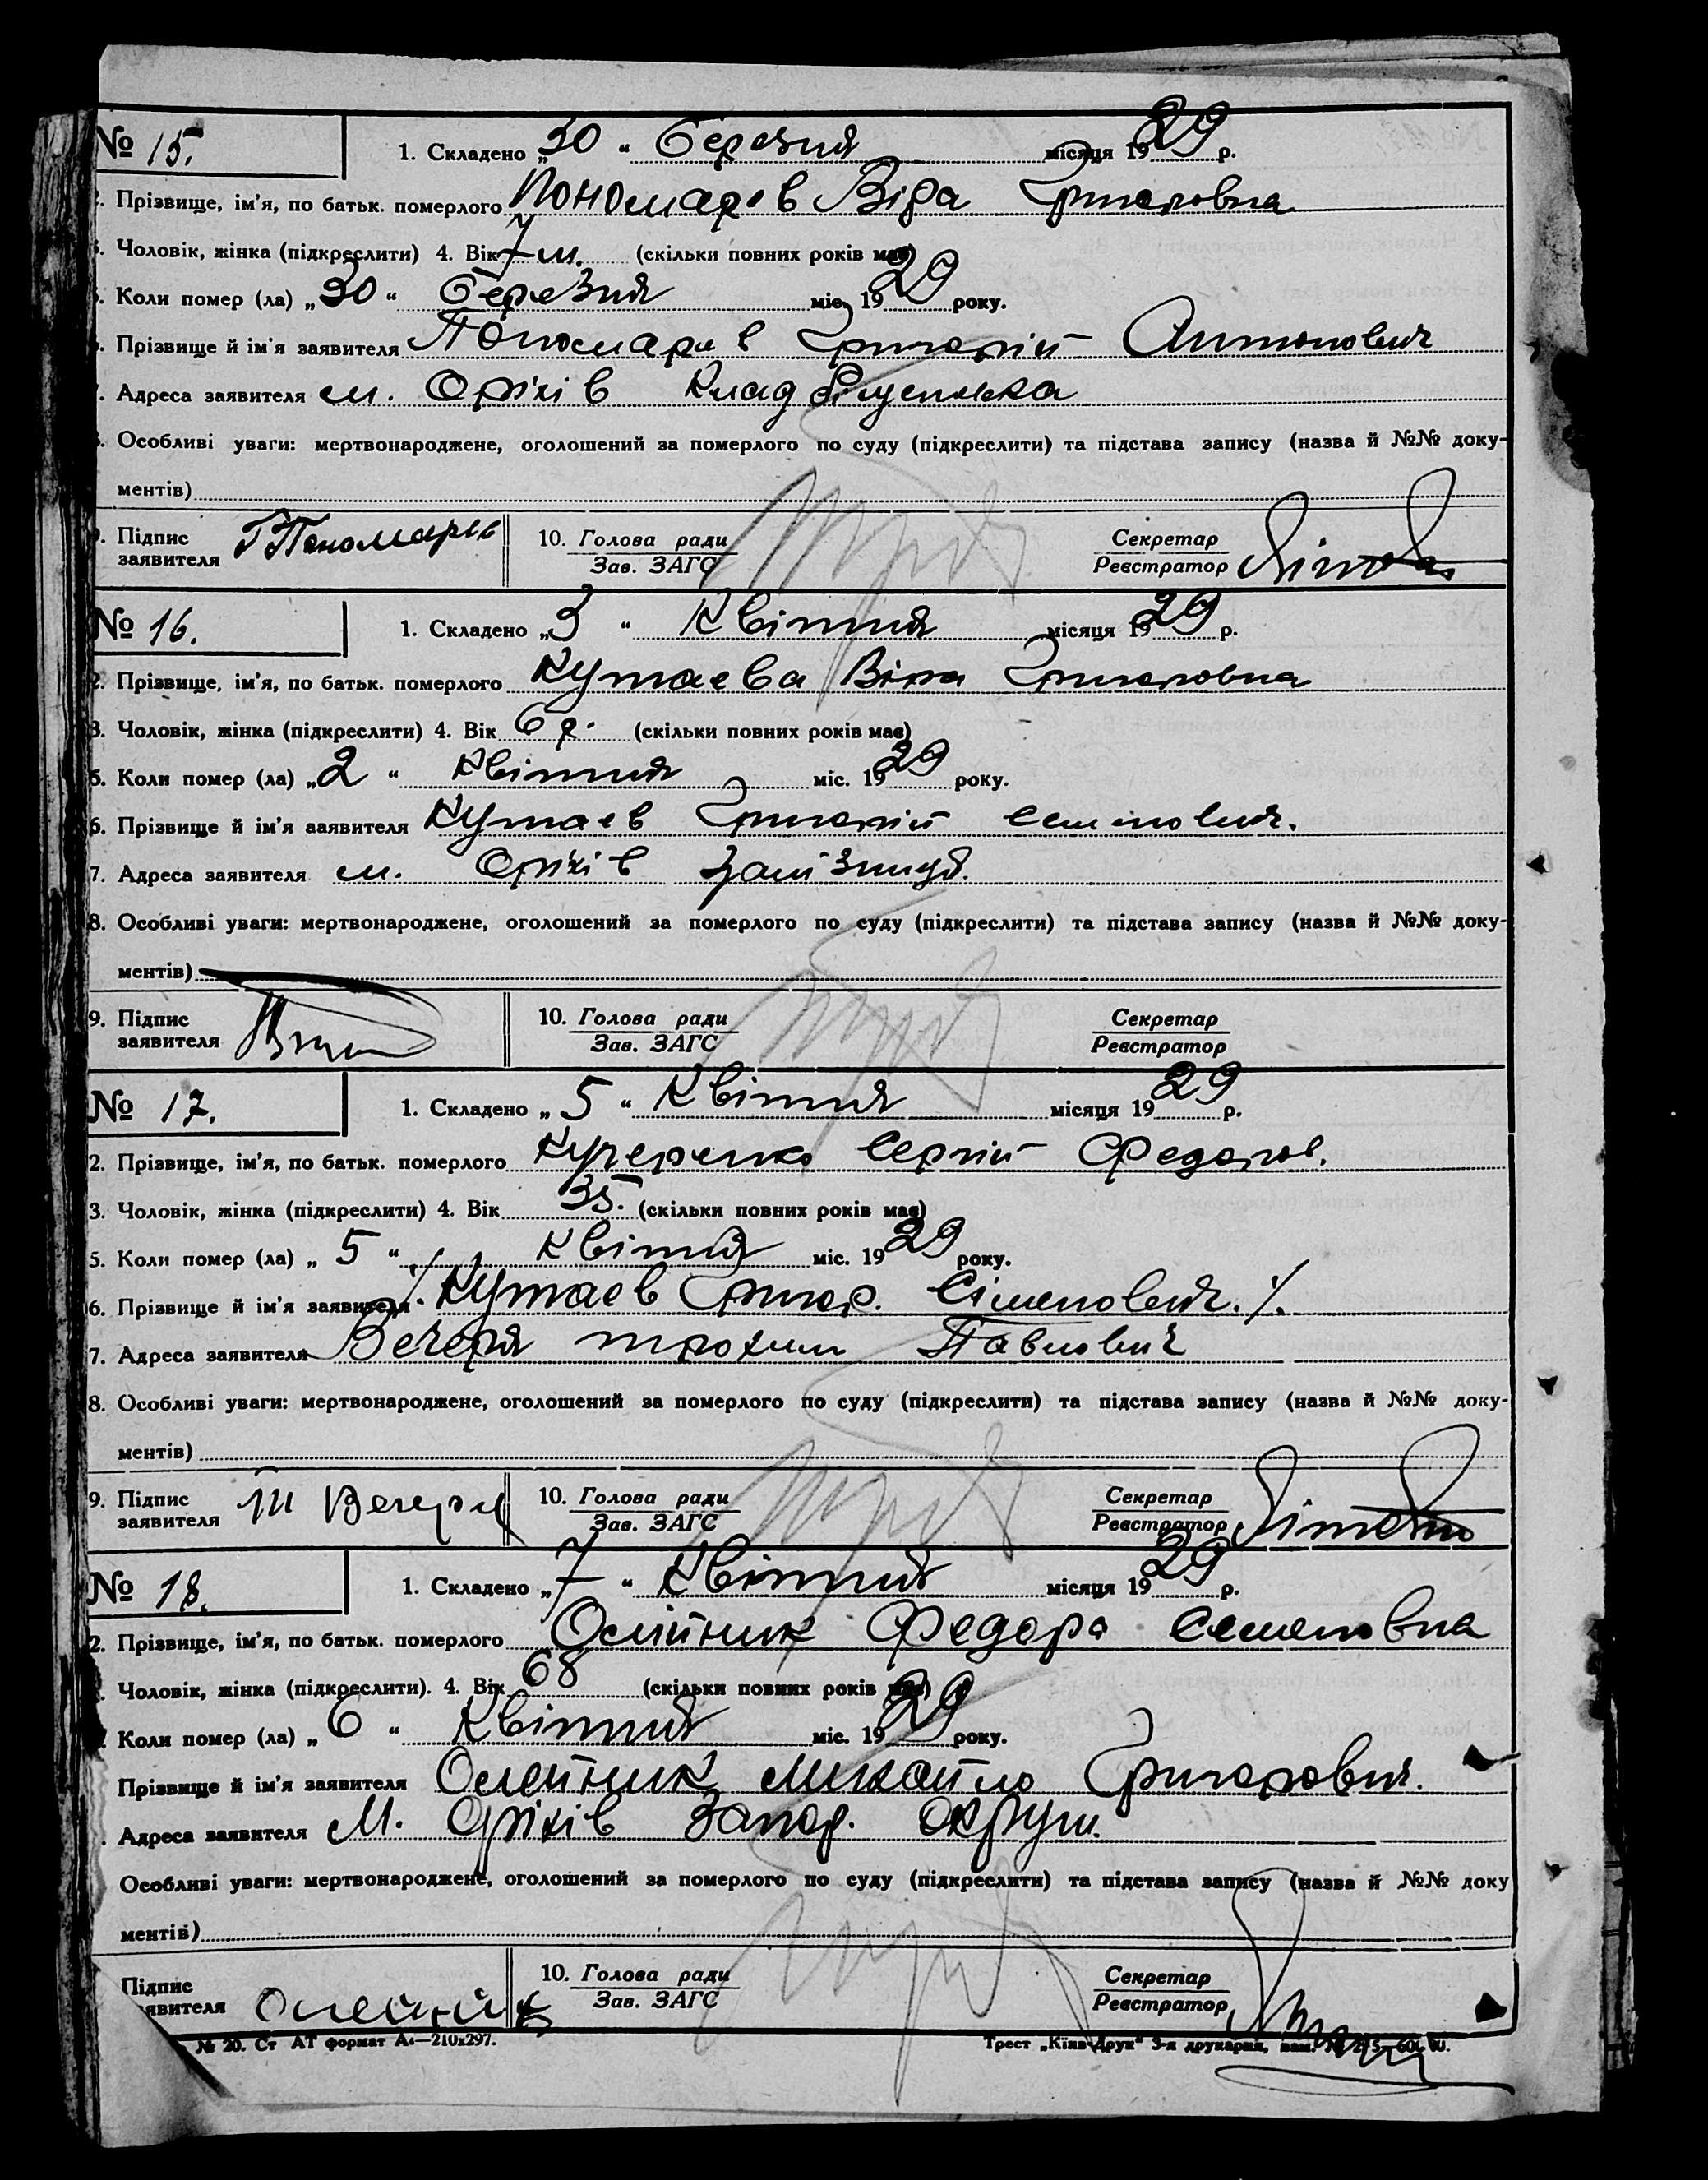 № 15. 1. Складено „30“ березня місяця 1929 р.
2. Прізвище, ім'я, по батьк. померлого Пономарьов Віра Григоровна
3. Чоловік, жінка (підкреслити) 4. Вік 7 м. (скільки повних років має)
5. Коли помер (ла) „30“ березня міс. 1929 року.
6. Прізвище й ім'я заявителя Пономарьов Григорій Антонович
7. Адреса заявителя м. Оріхів
8. Особливі уваги: мертвонароджене, оголошений за померлого по суду (підкреслити) та підстава запису (назва й №№ доку-
ментів)
9. Підпис заявителя Г Пономарьов 10. Голова ради Зав. ЗАГС Секретар Реєстратор
№ 16. 1. Складено „3“ Квітня місяця 1929 р.
2. Прізвище, ім'я, по батьк. померлого Кутаева Віра Григоровна
3. Чоловік, жінка (підкреслити) 4. Вік 6 р. (скільки повних років має)
5. Коли помер (ла) „2“ Квітня міс. 1929 року.
6. Прізвище й ім'я заявителя Кутаев Григорій Семенович.
7. Адреса заявителя м. Оріхів
8. Особливі уваги: мертвонароджене, оголошений за померлого по суду (підкреслити) та підстава запису (назва й №№ доку-
ментів)
9. Підпис заявителя 10. Голова ради Зав. ЗАГС Секретар Реєстратор
№ 17. 1. Складено „5“ Квітня місяця 1929 р.
2. Прізвище, ім'я, по батьк. померлого Кучеренко Сергій Федоров.
3. Чоловік, жінка (підкреслити) 4. Вік 35. (скільки повних років має)
5. Коли помер (ла) „5“ Квітня міс. 1929 року.
6. Прізвище й ім'я заявителя ./. Кутаев Григор. Сіменович ./.
7. Адреса заявителя Вечеря Трохим Павлович
8. Особливі уваги: мертвонароджене, оголошений за померлого по суду (підкреслити) та підстава запису (назва й №№ доку-
ментів)
9. Підпис заявителя Т Вечеря 10. Голова ради Зав. ЗАГС Секретар Реєстратор
№ 18. 1. Складено „7“ Квітня місяця 1929 р.
2. Прізвище, ім'я, по батьк. померлого Олійник Федора Семеновна
Чоловік, жінка (підкреслити). 4. Вік 68 (скільки повних років має)
Коли помер (ла) „6“ Квітня міс. 1929 року.
Прізвище й ім'я заявителя Олейник Михайло Григорович.
Адреса заявителя М. Оріхів Запор. округи.
Особливі уваги: мертвонароджене, оголошений за померлого по суду (підкреслити) та підстава запису (назва й №№ доку
ментів)
Підпис заявителя Олейник 10. Голова ради Зав. ЗАГС Секретар Реєстратор
№ 20. Ст АТ формат А4—210x297. Трест „Київ-Друк“ 3-я друкарня, зам. №